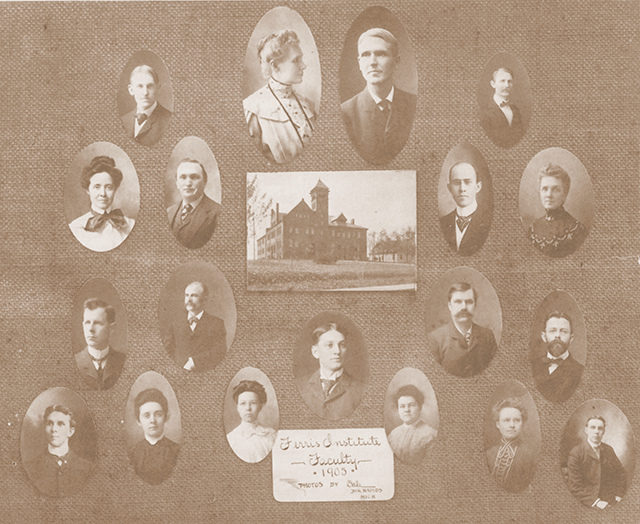 Ferris Institute
— Faculty —
· 1903 ·
PHOTOS BY
BIG RAPIDS
MICH